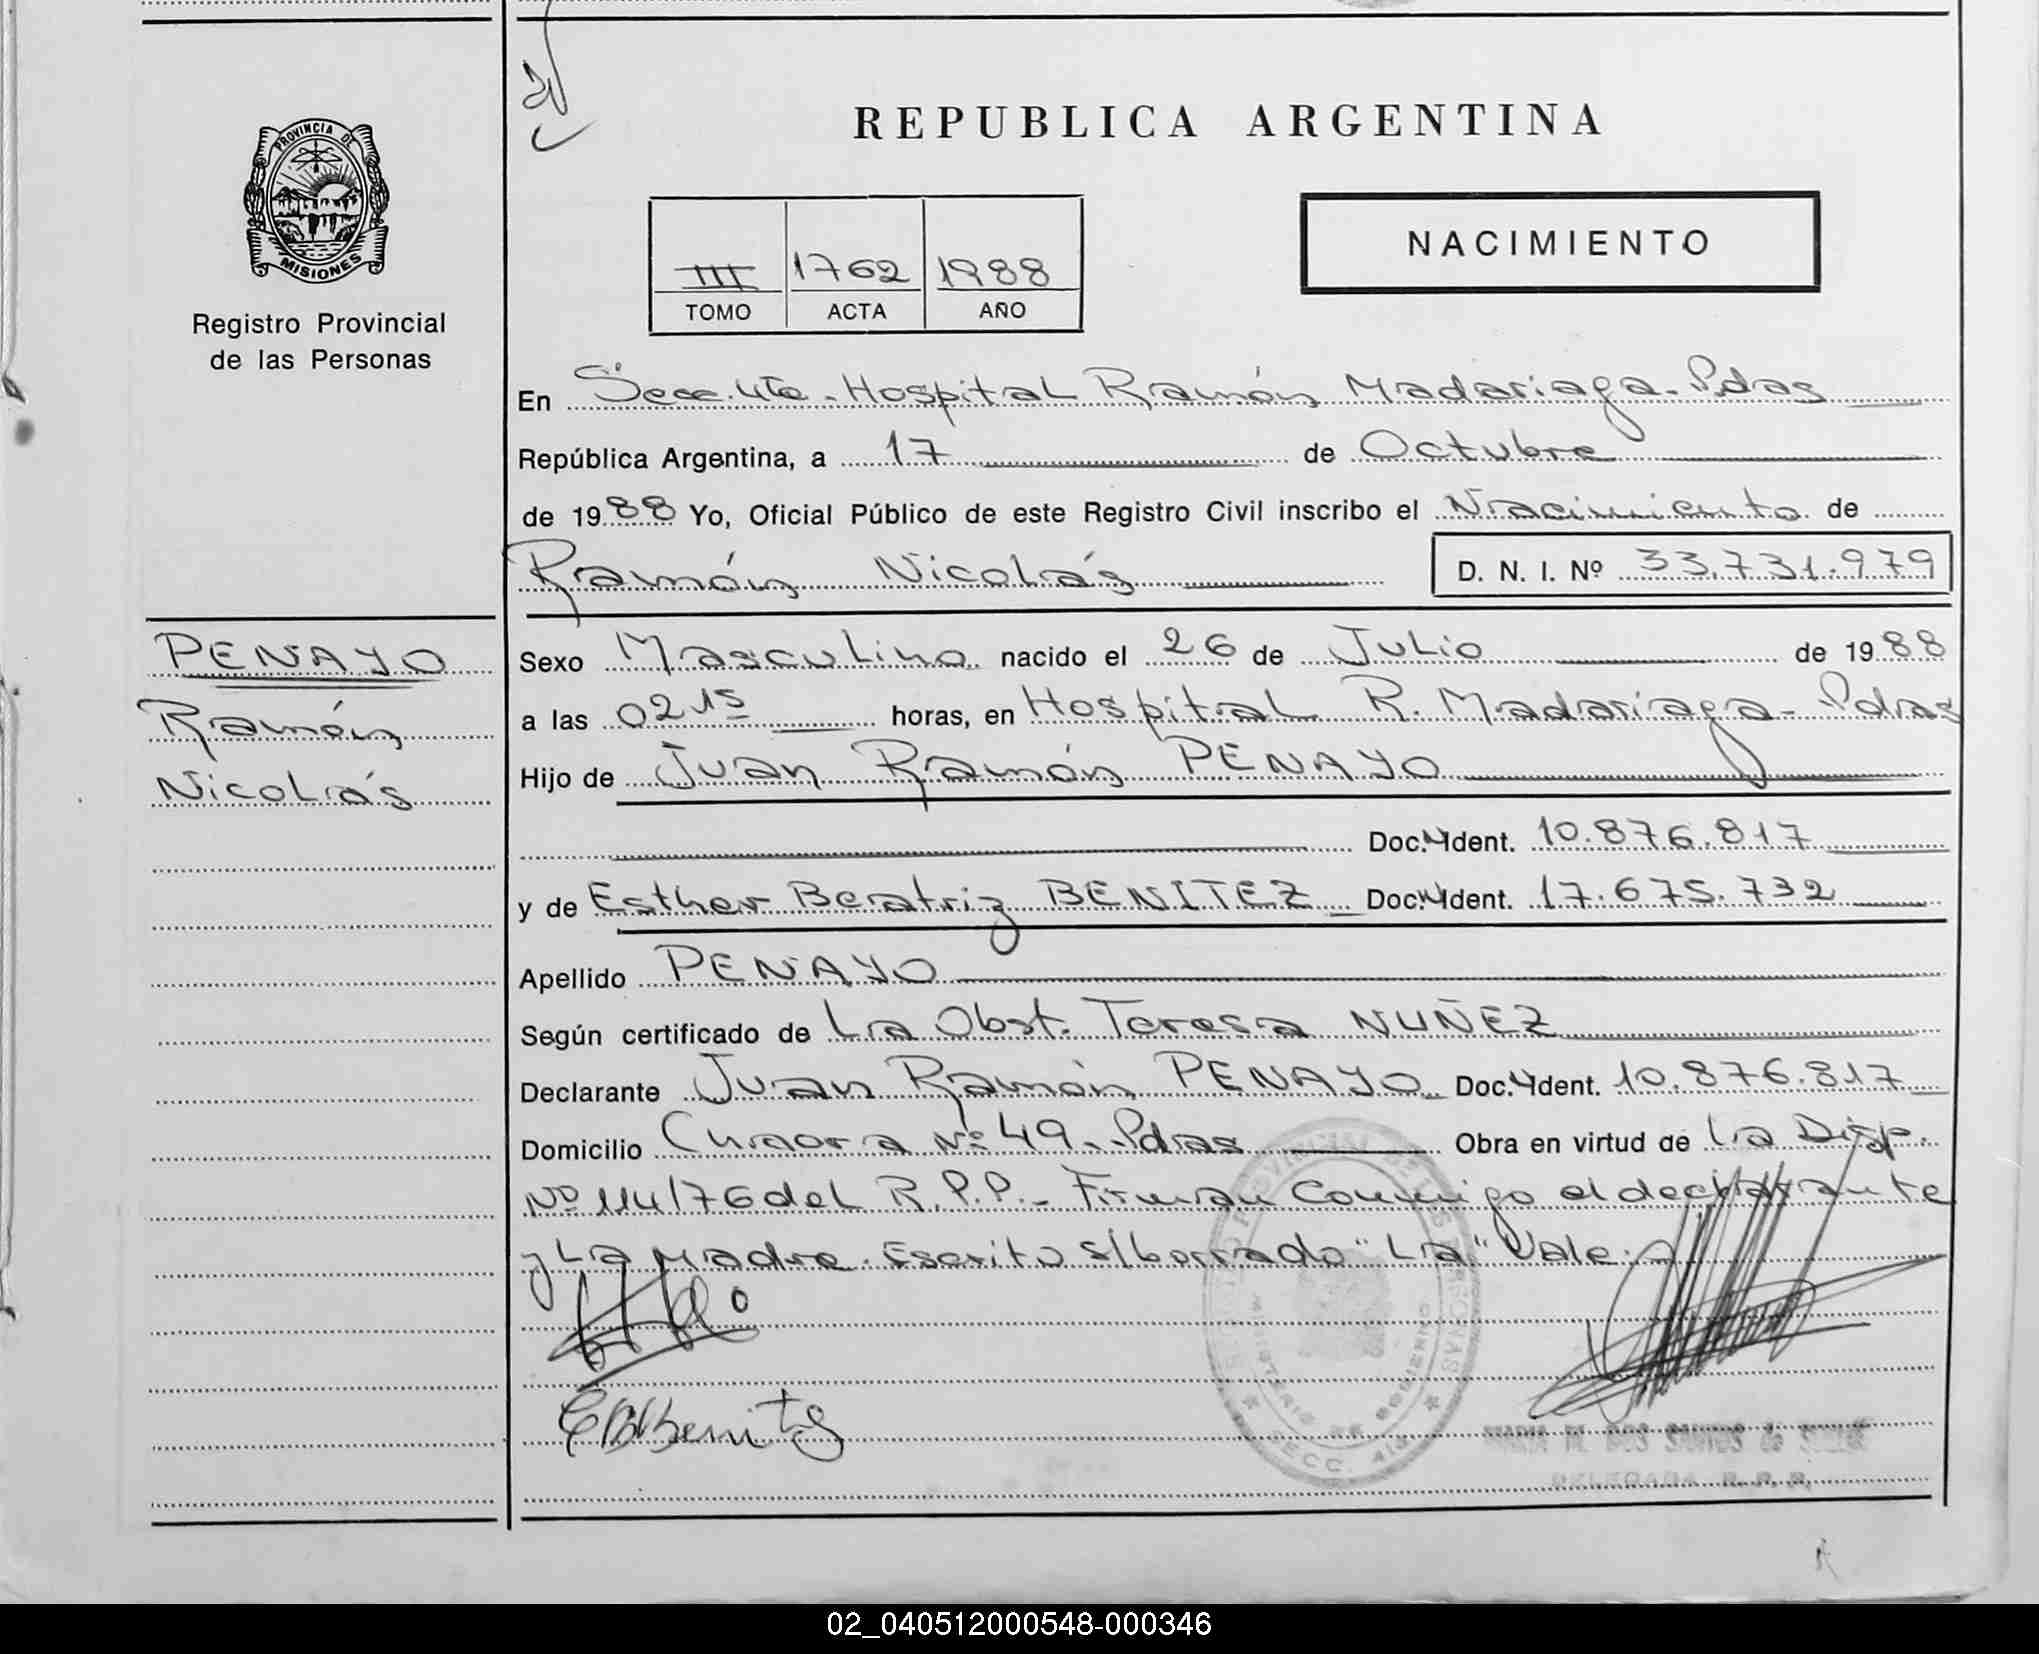 PROVINCIA DE
MISIONES
Registro Provincial
de las Personas
PENAYO
Ramón
Nicolás
REPUBLICA ARGENTINA
III 1762 1988
TOMO ACTA AÑO
NACIMIENTO
En Secc. 4ta - Hospital Ramón Madariaga - Pdas
República Argentina, a 17 de Octubre
de 1988 Yo, Oficial Público de este Registro Civil inscribo el Nacimiento de
Ramón Nicolás D. N. I. Nº 33.731.979
Sexo Masculino nacido el 26 de Julio de 1988
a las 02 15 horas, en Hospital R. Madariaga - Pdas
Hijo de Juan Ramón PENAYO
Doc. Ident. 10.876.817
y de Esther Beatriz BENITEZ Doc. Ident. 17.675.732
Apellido PENAYO
Según certificado de La Obst. Teresa NUÑEZ
Declarante Juan Ramón PENAYO Doc. Ident. 10.876.817
Domicilio Nº 49 - Pdas Obra en virtud de la Disp.
Nº 114/76 del R.P.P. - Firman Conmigo el declarante
y La Madre. Escrito s/borrado "La" Vale.
REGISTRO PROVINCIAL DE LAS PERSONAS
MINISTERIO DE GOBIERNO
SECC. 4ta
DELEGADA R.P.P.
02_040512000548-000346